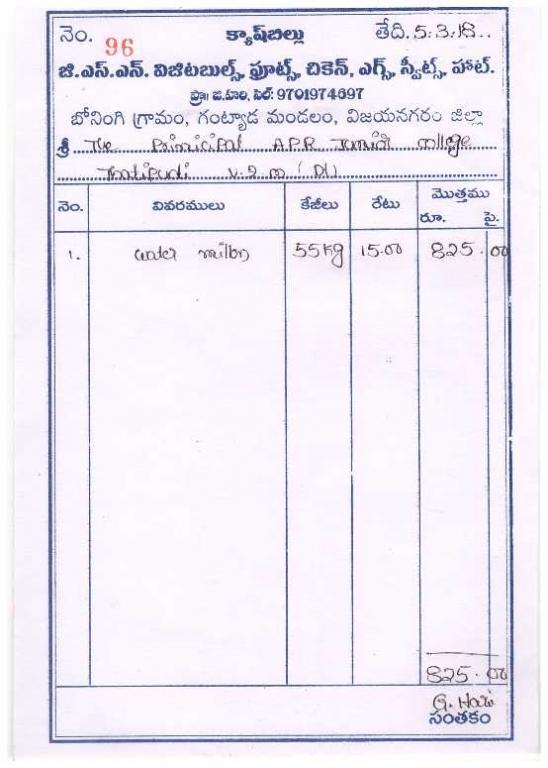 నెం. 96 క్యాష్‌బిల్లు తేది. 5.3.18..
జి.ఎస్.ఎన్. విజిటబుల్స్, ఫ్రూట్స్, చికెన్, ఎగ్స్, స్వీట్స్, హాట్.
ప్రొ॥ జి.హరి, సెల్: 9701974697
బోనింగి గ్రామం, గంట్యాడ మండలం, విజయనగరం జిల్లా
శ్రీ The Prinicipal A.P.R Junior College
Thatipudi V.Z.M (Dt)
నెం. వివరములు కేజీలు రేటు మొత్తము
రూ. పై.
1. water millon 55kg 15.00 825.00
825.00
G. Hari
సంతకం